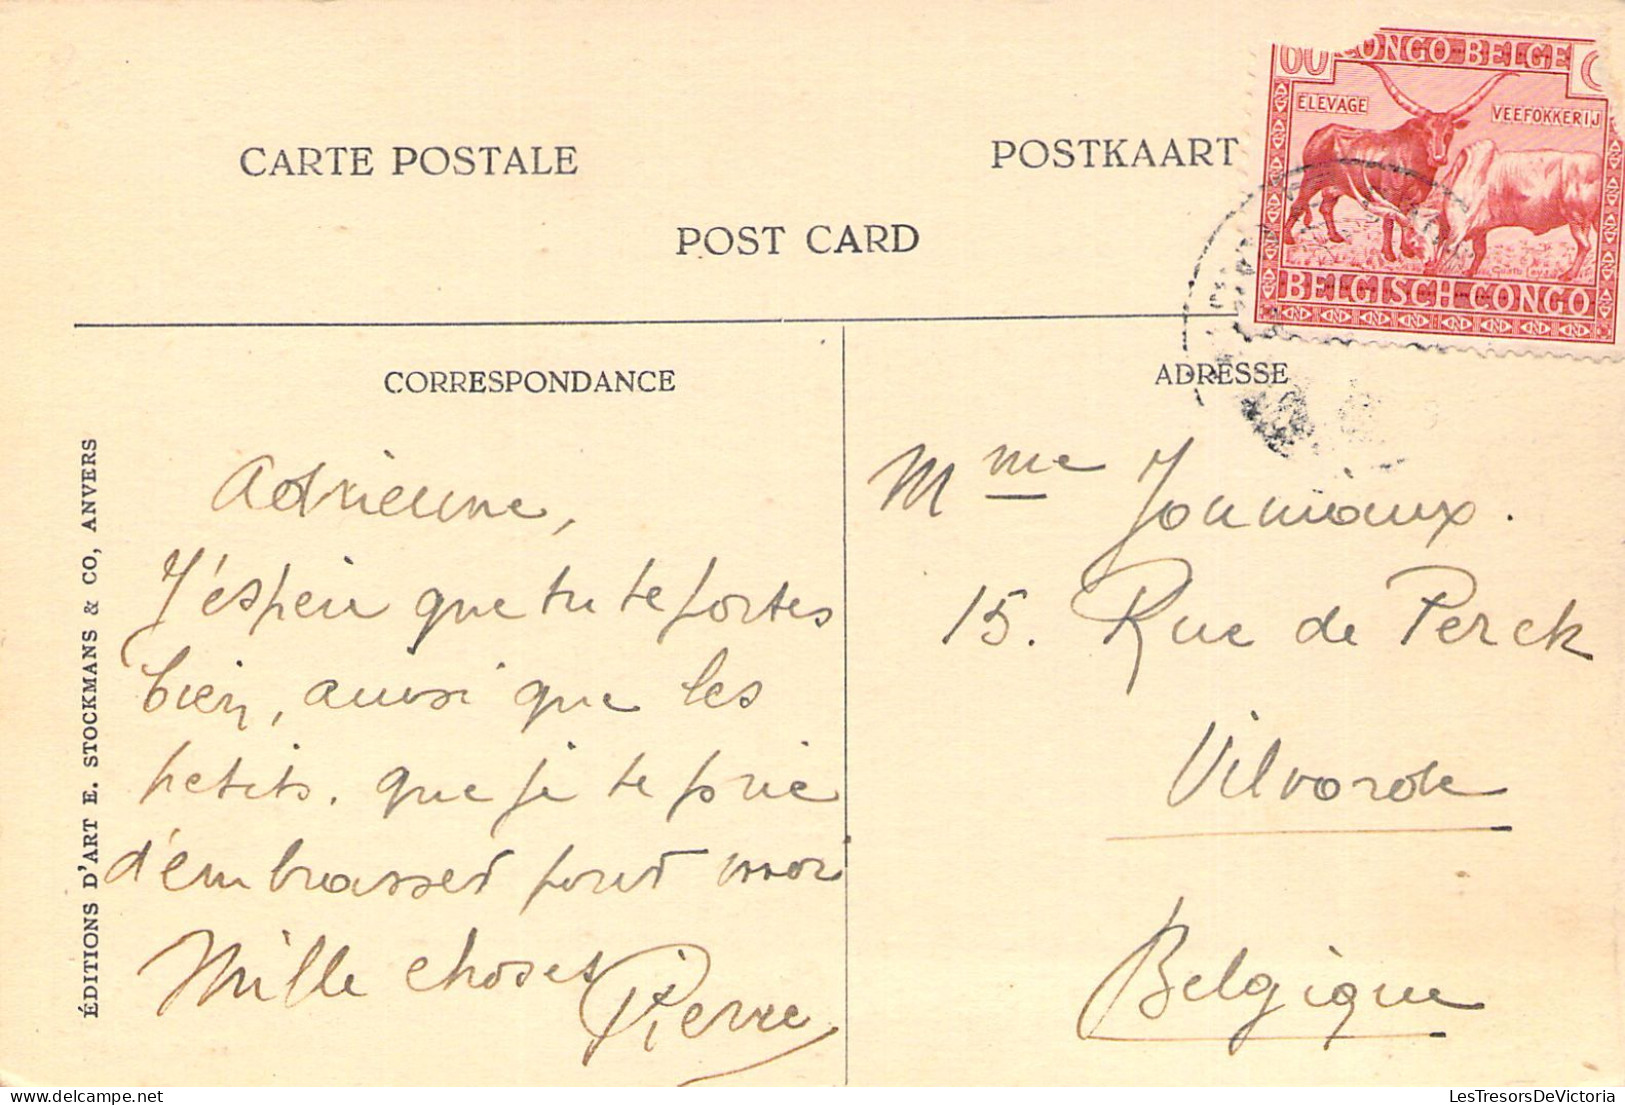 CARTE POSTALE
POSTKAART
POST CARD
60 CONGO BELGE
ELEVAGE
VEEFOKKERIJ
BELGISCH CONGO
CORRESPONDANCE
ADRESSE
ÉDITIONS D'ART E. STOCKMANS & CO, ANVERS
Adrienne,
J'espère que tu te portes
bien, aussi que les
petits. que je te prie
d'embrasser pour moi
Mille choses
Pierre
Mme
15. Rue de Perck
Vilvorde
Belgique
LesTresorsDeVictoria